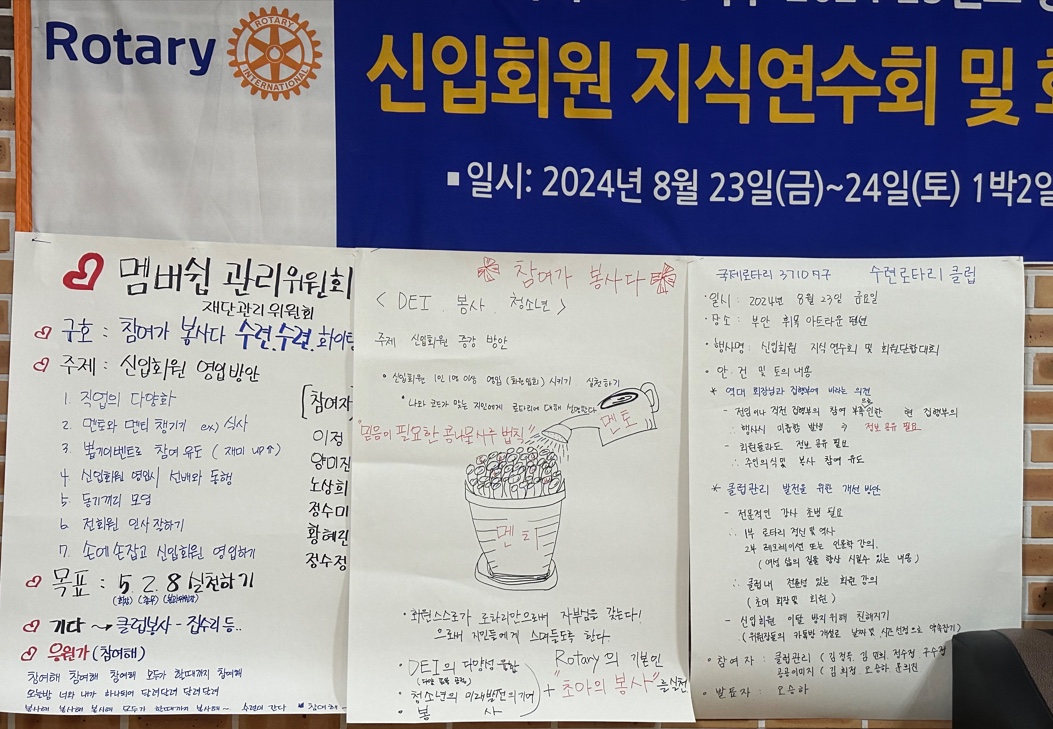 Rotary
ROTARY
INTERNATIONAL
신입회원 지식연수회 및
▪일시: 2024년 8월 23일(금)~24일(토) 1박2일
멤버쉽 관리위원회
재단관리위원회
구호 : 참여가 봉사다 수련.수련.화이팅
주제 : 신입회원 영입방안
1. 직업의 다양화
2. 멘토와 멘티 챙기기 ex) 식사
3. 뽑기이벤트로 참여 유도 (재미 up↑)
4 신입회원 영입시 선배와 동행
5 동기끼리 모임
6 전회원 인사 잘하기
7. 손에 손잡고 신입회원 영입하기
[참여자
이정
양미진
노상희
정수미
황혜린
정수정
목표 : 5. 2. 8 실천하기
기타 → 클럽봉사 - 집수리 등..
응원가 (참여해)
참여해 참여해 참여해 모두가 할때까지 참여해
오늘밤 너와 내가 하나되어 달려 달려 달려 달려
봉사해 봉사해 봉사해 모두가 할때까지 봉사해~ 수련이 간다
참여가 봉사다
< DEI . 봉사 . 청소년 >
주제 신입회원 증강 방안
• 신입회원 1인 1명 이상 영입 시키기 실천하기
• 나와 코드가 맞는 지인에게 로타리에 대해 설명한다
"믿음이 필요한 콩나물시루 법칙"
멘토
멘티
• 회원스스로가 로타리안으로써 자부심을 갖는다!
으로써 지인들에게 스며들도록 한다.
• DEI의 다양성 융합
• 청소년의 미래발전의 기여
• 봉 사
+
Rotary의 기본인
"초아의 봉사"를 실천
국제로타리 3710지구 수련로타리 클럽
• 일시 : 2024년 8월 23일 금요일
• 장소 : 부안 휘목 아트라운 펜션
• 행사명 : 신입회원 지식연수회 및 회원단합대회
• 안.건 및 토의내용
* 역대 회장님과 집행부에 바라는 의견
- 전임이나 직전 집행부의 참여 부족으로 인한 현 집행부의
∴ 행사시 미흡함 발생 → 정보 공유 필요
- 회원들과도 정보 공유 필요
∴ 주인의식및 봉사 참여 유도
* 클럽관리 발전을 위한 개선 방안
- 전문적인 강사 초빙 필요
∴ 1부 로타리 정신 및 역사
2부 레크레이션 또는 인문학 강의.
(여성 삶의 질을 향상 시킬수 있는 내용)
∴ 클럽내 전문성 있는 회원 강의
(초대 회장및 회원)
- 신입회원 이탈 방지위해 친해지기
(위원장들의 카톡방 개설로 날짜 및 시간 선정으로 약속잡기)
• 참여자 : 클럽관리 ( 김정옥, 김 정수정 구수정
공공이미지 ( 김희정. 오승하. 윤희원
• 발표자 : 오승하